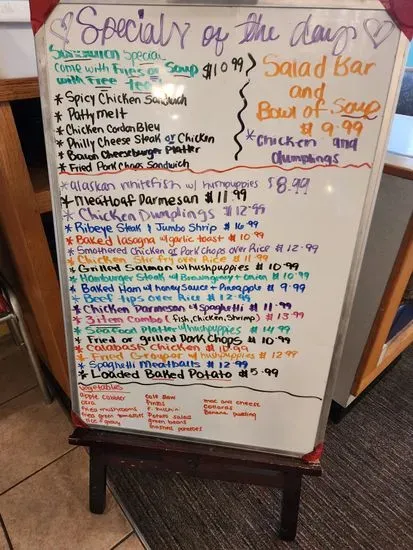 Specials of the day
Sandwich Special
come with Fries or Soup
with Free tea
$10.99
* Spicy Chicken Sandwich
* Pattymelt
* Chicken Cordon Bleu
* Philly Cheese Steak or Chicken
* Bacon Cheeseburger Platter
* Fried Pork Chops Sandwich
Salad Bar
and
Bowl of Soup
$9.99
* Chicken and
dumplings
* alaskan whitefish w/ hushpuppies $8.99
* Meatloaf Parmesan $11.99
* Chicken Dumplings $12.99
* Ribeye Steak & Jumbo Shrip $16.99
* Baked lasagna w/ garlic toast $10.99
* Smothered Chicken or Pork Chops over Rice $12.99
* Chicken Stir fry over Rice $11.99
* Grilled Salmon w/ hushpuppies $10.99
* Hamburger Steak w/ Brown gravy + onion $10.99
* Baked Ham w/ honey sauce + Pineapple $9.99
* Beef tips over Rice $12.99
* Chicken Parmesan w/ Spaghetti $11.99
* 3 item Combo (fish, Chicken, Shrimp) $13.99
* Seafood Platter w/ hushpuppies $14.99
* Fried or grilled Pork Chops $10.99
* Calabash Chicken $10.99
* Fried Grouper w/ hushpuppies $12.99
* Spaghetti Meatballs $12.99
* Loaded Baked Potato $5.99
Vegetables
apple cobbler
okra
fried mushrooms
fried green tomatoes
rice + gravy
cole slaw
Pintos
F. zucchin
Potato salad
green beans
mashed potatoes
mac and cheese
collards
Banana pudding